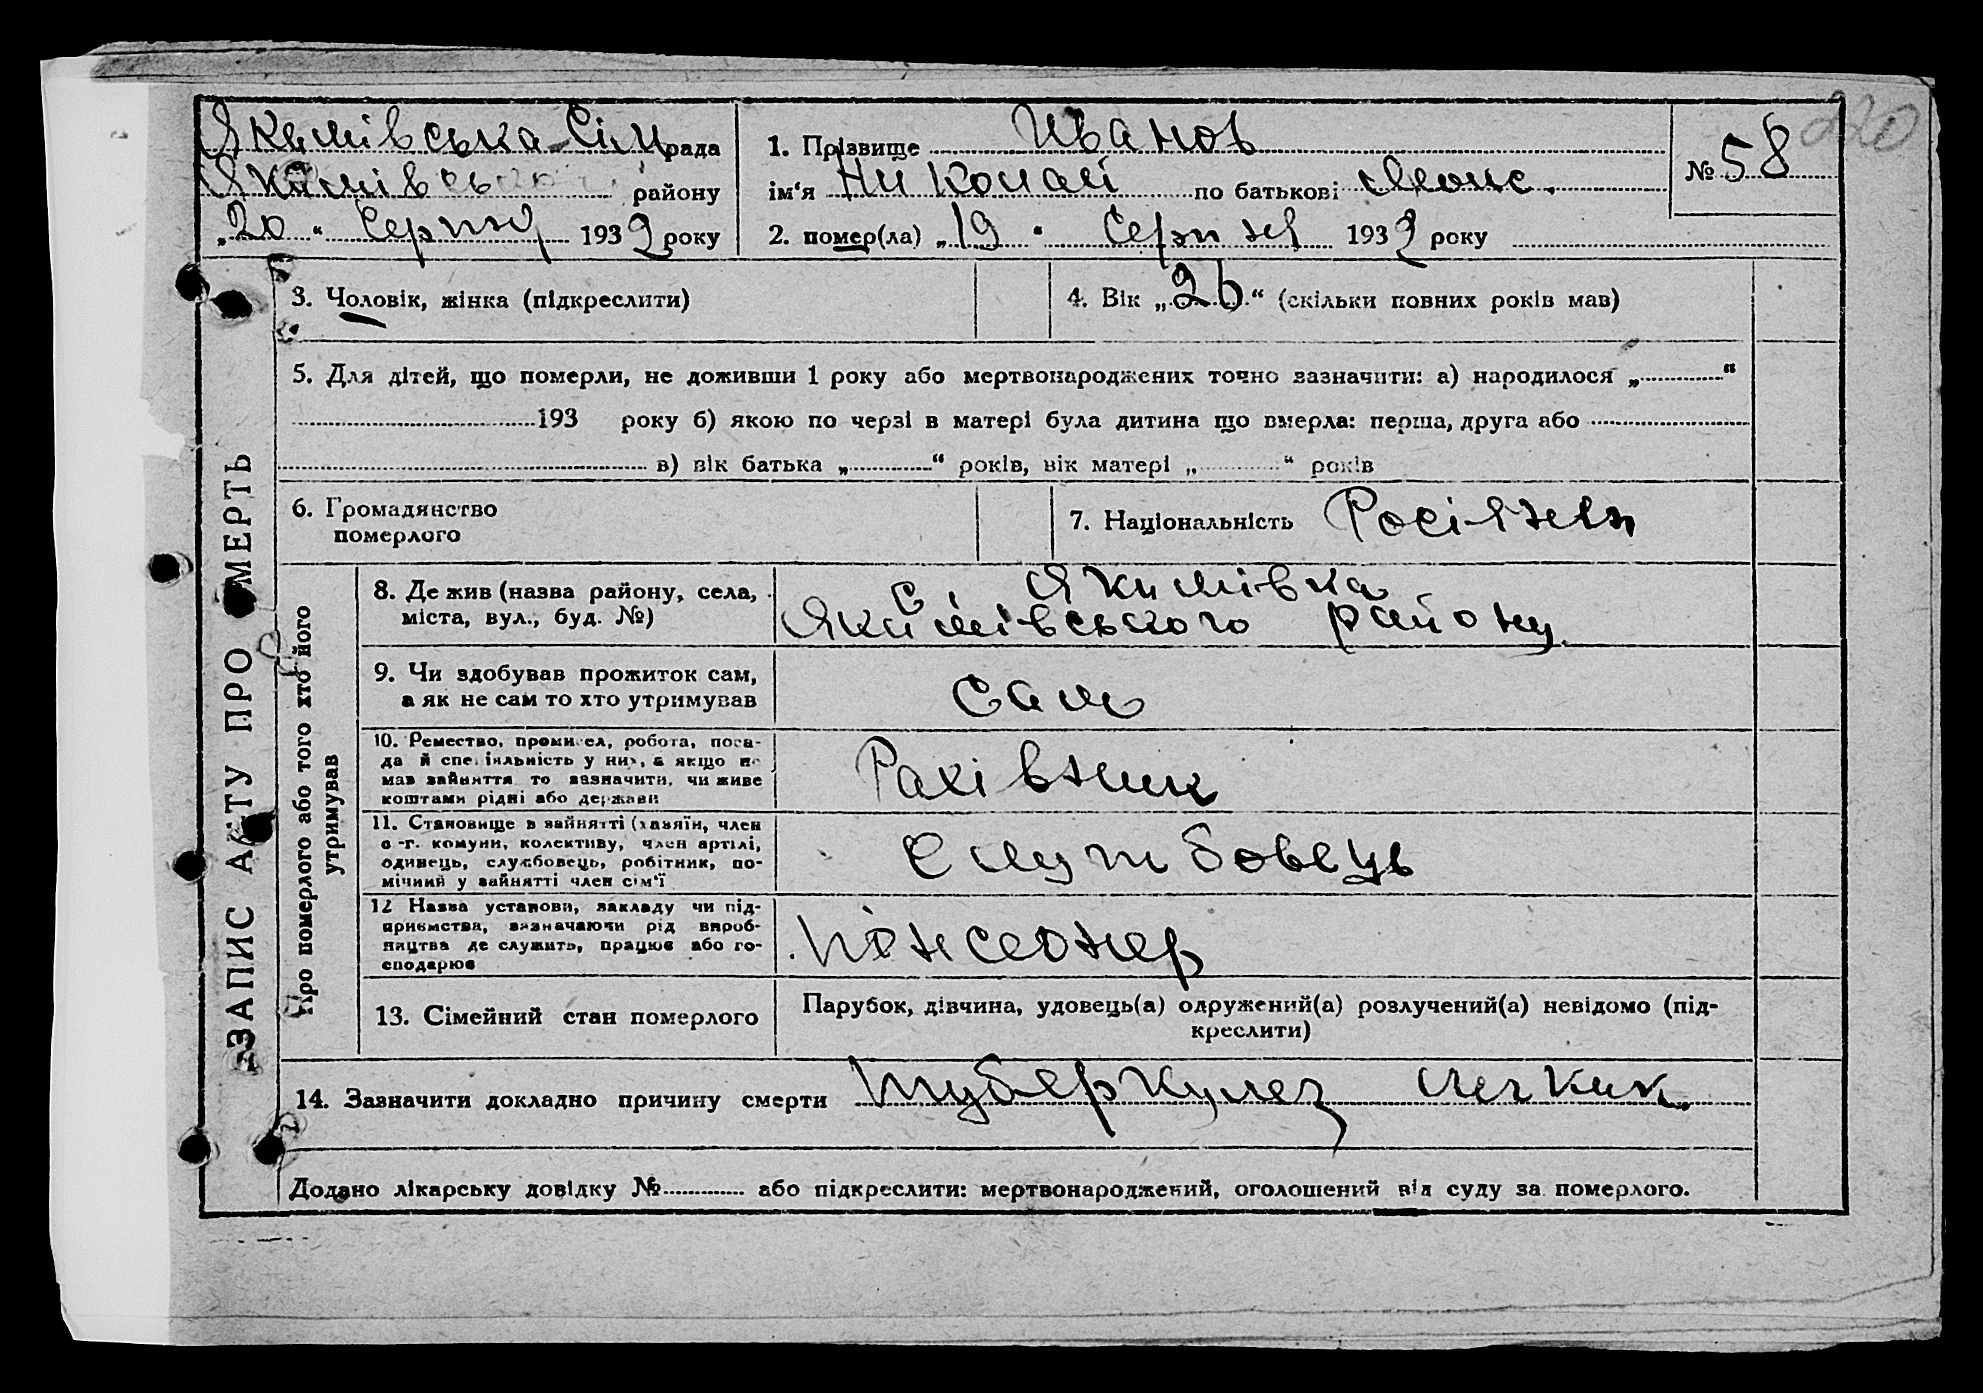 220
Якимівська Сіль рада
Якимівського району
„20“ Серпня 1932 року
1. Прізвище Иванов
ім'я Николай по батькові
2. помер(ла) „19“ Серпня 1932 року
№ 58
3. Чоловік, жінка (підкреслити)
4. Вік „26“ (скільки повних років мав)
5. Для дітей, що померли, не доживши 1 року або мертвонароджених точно зазначити: а) народилося „ “
193 року б) якою по черзі в матері була дитина що вмерла: перша, друга або
в) вік батька „ “ років, вік матері „ “ років
6. Громадянство
померлого
7. Національність Росіянин
ЗАПИС АКТУ ПРО СМЕРТЬ
Про померлого або того хто його
утримував
8. Де жив (назва району, села,
міста, вул., буд. №)
с. Якимівка
Якимівського району
9. Чи здобував прожиток сам,
а як не сам то хто утримував
Сам
10. Ремество, промисел, робота, поса-
да й спеціяльність у них, а якщо не
мав зайняття то зазначити, чи живе
коштами рідні або держави
Рахівник
11. Становище в зайнятті (хазяїн, член
с.-г. комуни, колективу, член артілі,
одинець, службовець, робітник, по-
мічний у зайнятті член сім'ї
Службовець
12 Назва установи, закладу чи під-
приємства, зазначаючи рід вироб-
ництва де служить, працює або го-
сподарює
Понсеонер
13. Сімейний стан померлого
Парубок, дівчина, удовець(а) одружений(а) розлучений(а) невідомо (під-
креслити)
14. Зазначити докладно причину смерти Туберкулез легких.
Додано лікарську довідку № або підкреслити: мертвонароджений, оголошений від суду за померлого.